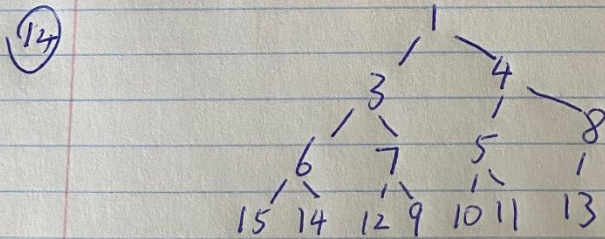 14
1
3 4
6 7 5 8
15 14 12 9 10 11 13